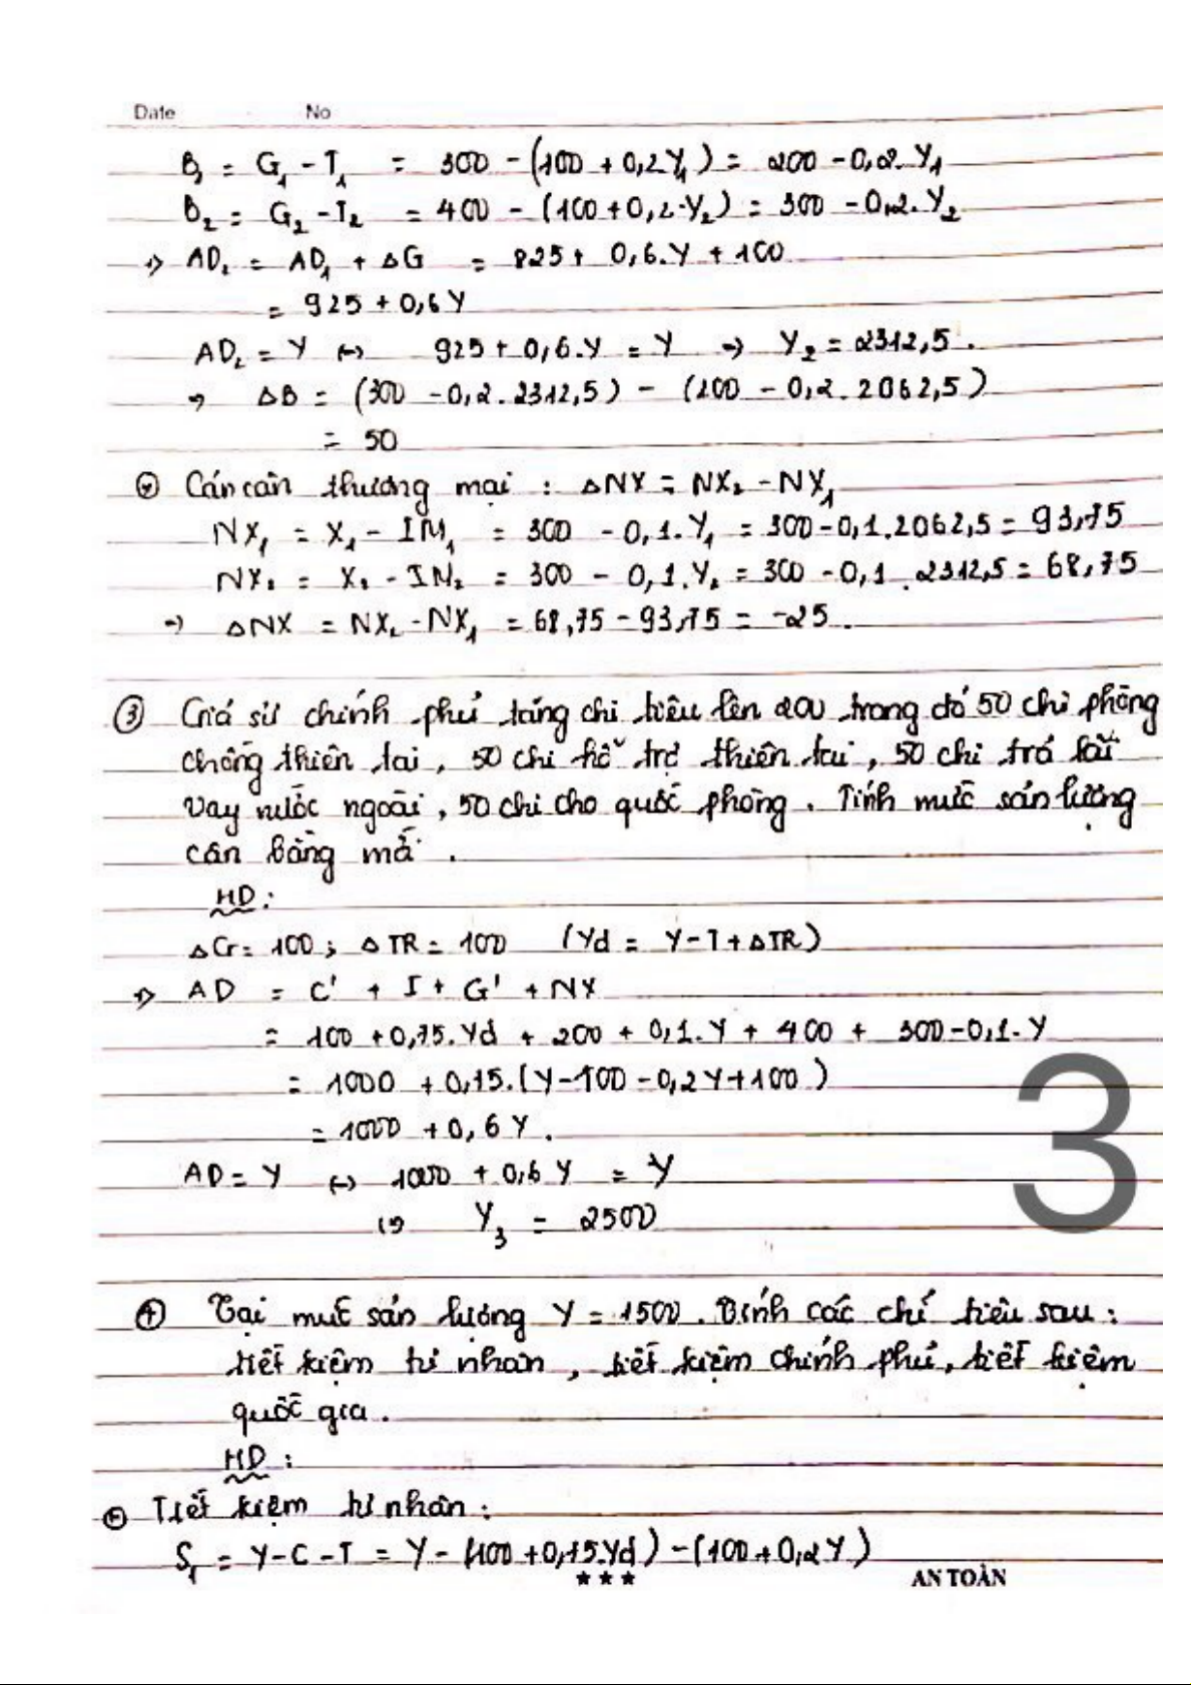 Date No
B₁ = G₁ - T₁ = 300 - (100 + 0,2Y₁) = 200 - 0,2.Y₁
B₂ = G₂ - T₂ = 400 - (100 + 0,2.Y₂) = 300 - 0,2.Y₂
=> AD₂ = AD₁ + ΔG = 825 + 0,6.Y + 100
= 925 + 0,6Y
AD₂ = Y <-> 925 + 0,6.Y = Y -> Y₂ = 2312,5.
-> ΔB = (300 - 0,2.2312,5) - (200 - 0,2.2062,5)
= 50
Cán cân thương mại : ΔNX = NX₂ - NX₁
NX₁ = X₁ - IM₁ = 300 - 0,1.Y₁ = 300 - 0,1.2062,5 = 93,75
NX₂ = X₂ - IM₂ = 300 - 0,1.Y₂ = 300 - 0,1.2312,5 = 68,75
-> ΔNX = NX₂ - NX₁ = 68,75 - 93,75 = -25.
③ Giả sử chính phủ tăng chi tiêu lên 200 trong đó 50 chi phòng
chống thiên tai, 50 chi hỗ trợ thiên tai, 50 chi trả lãi
vay nước ngoài, 50 chi cho quốc phòng. Tính mức sản lượng
cân bằng mới.
HD:
ΔG = 100 ; ΔTR = 100 (Yd = Y - T + ΔTR)
=> AD = C' + I + G' + NX
= 100 + 0,75.Yd + 200 + 0,1.Y + 400 + 300 - 0,1.Y
= 1000 + 0,75.(Y - 100 - 0,2Y + 100)
= 1000 + 0,6Y.
AD = Y <-> 1000 + 0,6Y = Y
<=> Y₃ = 2500
④ Tại mức sản lượng Y = 1500. Tính các chỉ tiêu sau:
tiết kiệm tư nhân, tiết kiệm chính phủ, tiết kiệm
quốc gia.
HD:
Tiết kiệm tư nhân:
Sₚ = Y - C - T = Y - (100 + 0,75.Yd) - (100 + 0,2Y)
★ ★ ★ AN TOÀN
3